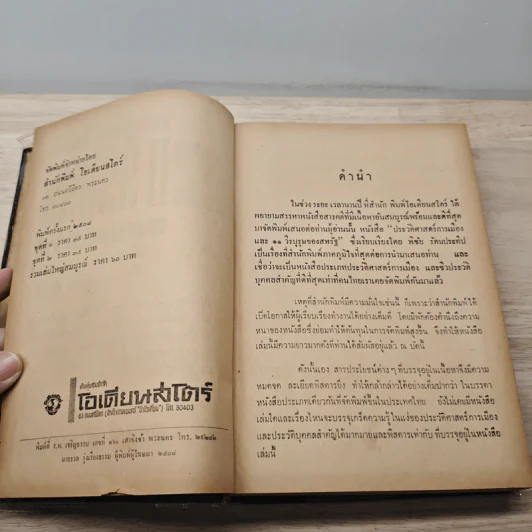 จัดพิมพ์จำหน่ายโดย
สำนักพิมพ์ โอเดียนสโตร์
พิมพ์ครั้งแรก ๒๕๐๘
ชุดที่ ๑ ราคา ๓๕ บาท
ชุดที่ ๒ ราคา ๓๕ บาท
รวมเล่มใหญ่สมบูรณ์ ราคา ๖๐ บาท
โอเดียนสโตร์
โทร. 30403
คำนำ
ในช่วง ระยะ เวลานานปี ที่สำนัก พิมพ์โอเดียนสโตร์ ได้
พยายามสรรหาหนังสือสารคดีที่มีเนื้อหาอันสมบูรณ์พร้อมและดีที่สุด
มาจัดพิมพ์เสนอต่อท่านผู้อ่านนั้น หนังสือ “ประวัติศาสตร์การเมือง
และ ๑๑ วีรบุรุษของสหรัฐ” ซึ่งเรียบเรียงโดย พิชัย รัตนประทีป
เป็นเรื่องที่สำนักพิมพ์ภาคภูมิใจที่สุดต่อการนำมาเสนอท่าน และ
เชื่อว่าจะเป็นหนังสือประเภทประวัติศาสตร์การเมือง และชีวประวัติ
บุคคลสำคัญที่ดีที่สุดเท่าที่คนไทยเราเคยจัดพิมพ์กันมาแล้ว
เหตุที่สำนักพิมพ์มีความมั่นใจเช่นนี้ ก็เพราะว่าสำนักพิมพ์ได้
เปิดโอกาสให้ผู้เรียบเรียงทำงานได้อย่างเต็มที่ โดยมิพักต้องคำนึงถึงความ
หนาของหนังสือซึ่งย่อมทำให้ต้นทุนในการจัดพิมพ์สูงขึ้น จึงทำให้หนังสือ
เล่มนี้มีความยาวมากดังที่ท่านได้สัมผัสอยู่แล้ว ณ บัดนี้
ดังนั้นเอง สารประโยชน์ต่าง ๆ ที่บรรจุอยู่ในเนื้อหาจึงมีความ
หมดจด ละเอียดพิสดารยิ่ง ทำให้กล้ากล่าวได้อย่างเต็มปากว่า ในบรรดา
หนังสือประเภทเดียวกันที่จัดพิมพ์ขึ้นในประเทศไทย ยังไม่เคยมีหนังสือ
เล่มใดและเรื่องไหนจะบรรจุเกร็ดความรู้ในแง่ของประวัติศาสตร์การเมือง
และประวัติบุคคลสำคัญได้มากมายและพิสดารเท่ากับ ที่บรรจุอยู่ในหนังสือ
เล่มนี้